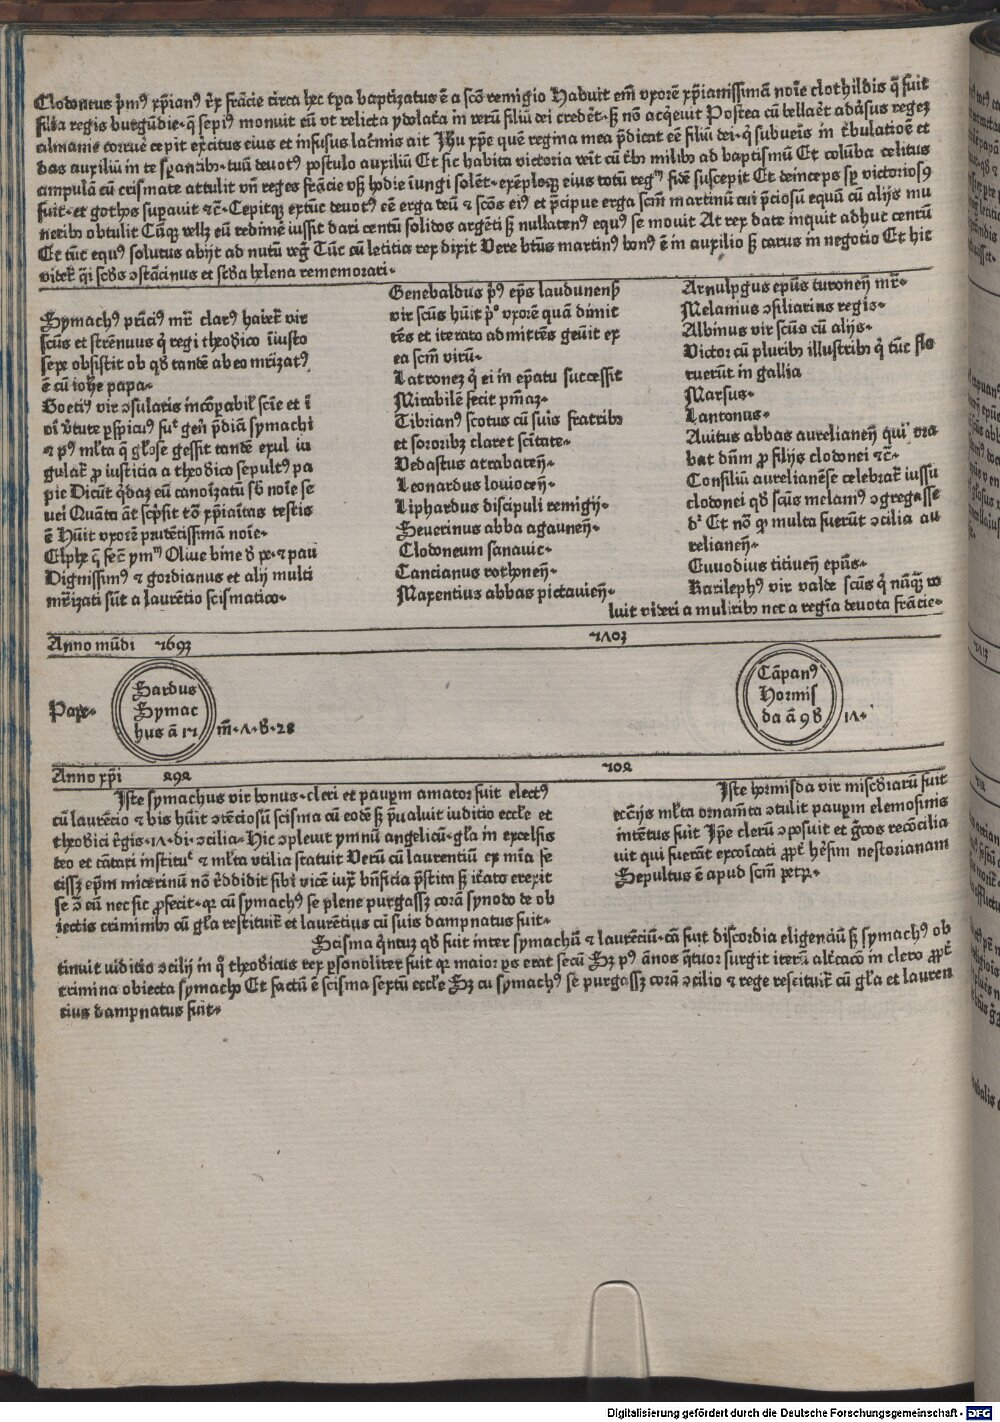 Clodoueus p̄mꝰ xp̄ianꝰ rex frācie circa hec tp̄a baptizatus ē a scō remigio Habuit em̄ vxorē xp̄ianissimā noīe clothildis q̄ fuit
filia regis burgūdie· q̄ sepiꝰ monuit eū vt relicta ydolatria in verū filiū dei crederet· sꝫ nō acq̇euit Postea cū bellaret aduersus regeꝫ
almanie corruere cepit exercitus eius et infusus lacrimis ait Jhū xp̄e quē regina mea p̄dicat eē filiū dei· q̇ subuenis in tribulatiōe et
das auxiliū in te sperantibꝰ· tuū deuotꝰ postulo auxiliū Et sic habita victoria venit cū tribꝰ milibꝰ ad baptismū Et colūba celitus
ampulā cū crismate attulit vn̄ reges frācie vsqꝫ hodie inungi solēt· exēploqꝫ eius totū regnū fidē suscepit Et deinceps semper victoriosꝰ
fuit· et gothos superauit ⁊c̄· Cepitqꝫ extūc deuotꝰ eē erga deū ⁊ scōs eiꝰ et p̄cipue erga scm̄ martinū cui p̄ciosū equū cū alijs mu
neribꝰ obtulit Cūqꝫ vellet eū redimere iussit dari centū solidos argēti sꝫ nullatenꝰ equꝰ se mouit At rex date inquit adhuc centū
Et tūc equꝰ solutus abijt ad nutū regis Tūc cū leticia rex dixit Vere btūs martinꝰ bonꝰ ē in auxilio sꝫ carus in negotio Et hic
videntur qui scd̄s ɔstātinus et scd̄a helena rememorari·
Symachꝰ patriciꝰ mr̄ clarꝰ habetur vir
scūs et strēnuus q̇ regi theodico iniusto
sepe obsistit ob qd̄ tandē ab eo mrīzatꝰ
ē cū ioh̄e papa·
Boetiꝰ vir ɔsularis incōparabilis scīe et ī
oī virtute perspicuus fuit gener p̄dicti symachi
⁊ pꝰ mlta q̄ gloriose gessit tandē exul iu
gulatur pro iusticia a theodico sepultꝰ pa
pie Dicūt quidaꝫ eū canoīzatū sub noīe se
uerī Quāta autem scripserit tōta xp̄ianitas testis
ē Huit vxorē prudētissimā noīe·
Elphe q̄ fecit ymnū Oliue bine de pe· ⁊ pau
Dignissimꝰ ⁊ gordianus et alij multi
mr̄izati sūt a laurētio scismatico·
Genebaldus pꝰ ep̄s laudunensis
vir scūs huit pꝰ vxorē quā dimit
tēs et iterato admittēs genuit ex
ea scm̄ virū·
Latroneꝫ q̇ ei in ep̄atu successit
Mirabilē fecit pn̄iaꝫ·
Tibrianꝰ scotus cū suis fratribꝰ
et sororibꝫ claret scītate·
Vedastus atrabateñ·
Leonardus louioceñ·
Liphardus discipuli remigij·
Seuerinus abba agauneñ·
Clodoueum sanauit·
Cancianus rothoneñ·
Maxentius abbas pictauieñ·
Arnulphus ep̄us turoneñ mr̄·
Melanius ɔsiliarius regis·
Albinus vir scūs cū alijs·
Victor cū pluribꝰ illustribꝰ q̇ tūc flo
ruerūt in gallia
Marsus·
Lantonus·
Auitus abbas aurelianeñ qui ora
bat dn̄m pro filijs clodouei ⁊c̄·
Consiliū aurelianēse celebratur iussu
clodouei qd̄ scūs melaniꝰ ɔgregasse
dicitur Et nō qꝛ multa fuerūt ɔcilia au
relianeñ·
Euuodius titiueñ ep̄us·
Karilephꝰ vir valde scūs q̇ nūqꝫ vo
luit videri a muliribꝰ nec a regīa deuota frācie·
Anno mūdi 5693 5703
Pape·
Sardus
Symac
hus ā 15
m̄·7·d·28
Cāpanꝰ
Hormis
da ā 9 d
17·
Anno xp̄i 494 504
Iste symachus vir bonus· cleri et pauperum amator fuit electꝰ
cū laurētio ⁊ bis huit ɔtēciosū scisma cū eodē sꝫ p̄ualuit iuditio eccl̄e et
theodici regis·17·di·ɔcilia· Hic ɔpleuit ymnū angelicū· gl̄a in excelsis
deo et cātari instituit ⁊ mlta vtilia statuit Verū cū laurentiū ex mīa fe
cissꝫ ep̄m nucerinū nō reddidit sibi vicē iuxta bn̄ficia p̄stita sꝫ iterato erexit
se ɔtra eū nec sic profecit· qꝛ cū symachꝰ se plene purgassꝫ corā synodo de ob
iectis criminibꝰ cū gl̄a restituitur et laurētius cū suis dampnatus fuit·
Iste hormisda vir misericordiarū fuit
ecclesijs mlta ornamēta ɔtulit pauperum elemosinis
intētus fuit Ip̄e clerū ɔposuit et grecos recōcilia
uit qui fuerāt excoīcati propter heresim nestorianam
Sepultus ē apud scm̄ petrum·
Scisma quintum qd̄ fuit inter symachū ⁊ laurēciū· cā fuit discordia eligenciū sꝫ symachꝰ ob
tinuit iuditio ɔcilij in quo theodicus rex personaliter fuit qꝛ maior pars erat secū Sꝫ pꝰ ānos quatuor surgit iterū altercacio in clero propter
crimina obiecta symacho Et factū ē scisma sextū eccl̄e Sꝫ cū symachꝰ se purgassꝫ corā ɔcilio ⁊ rege restituitur cū gl̄a et lauren
tius dampnatus fuit·
Digitalisierung gefördert durch die Deutsche Forschungsgemeinschaft - DFG